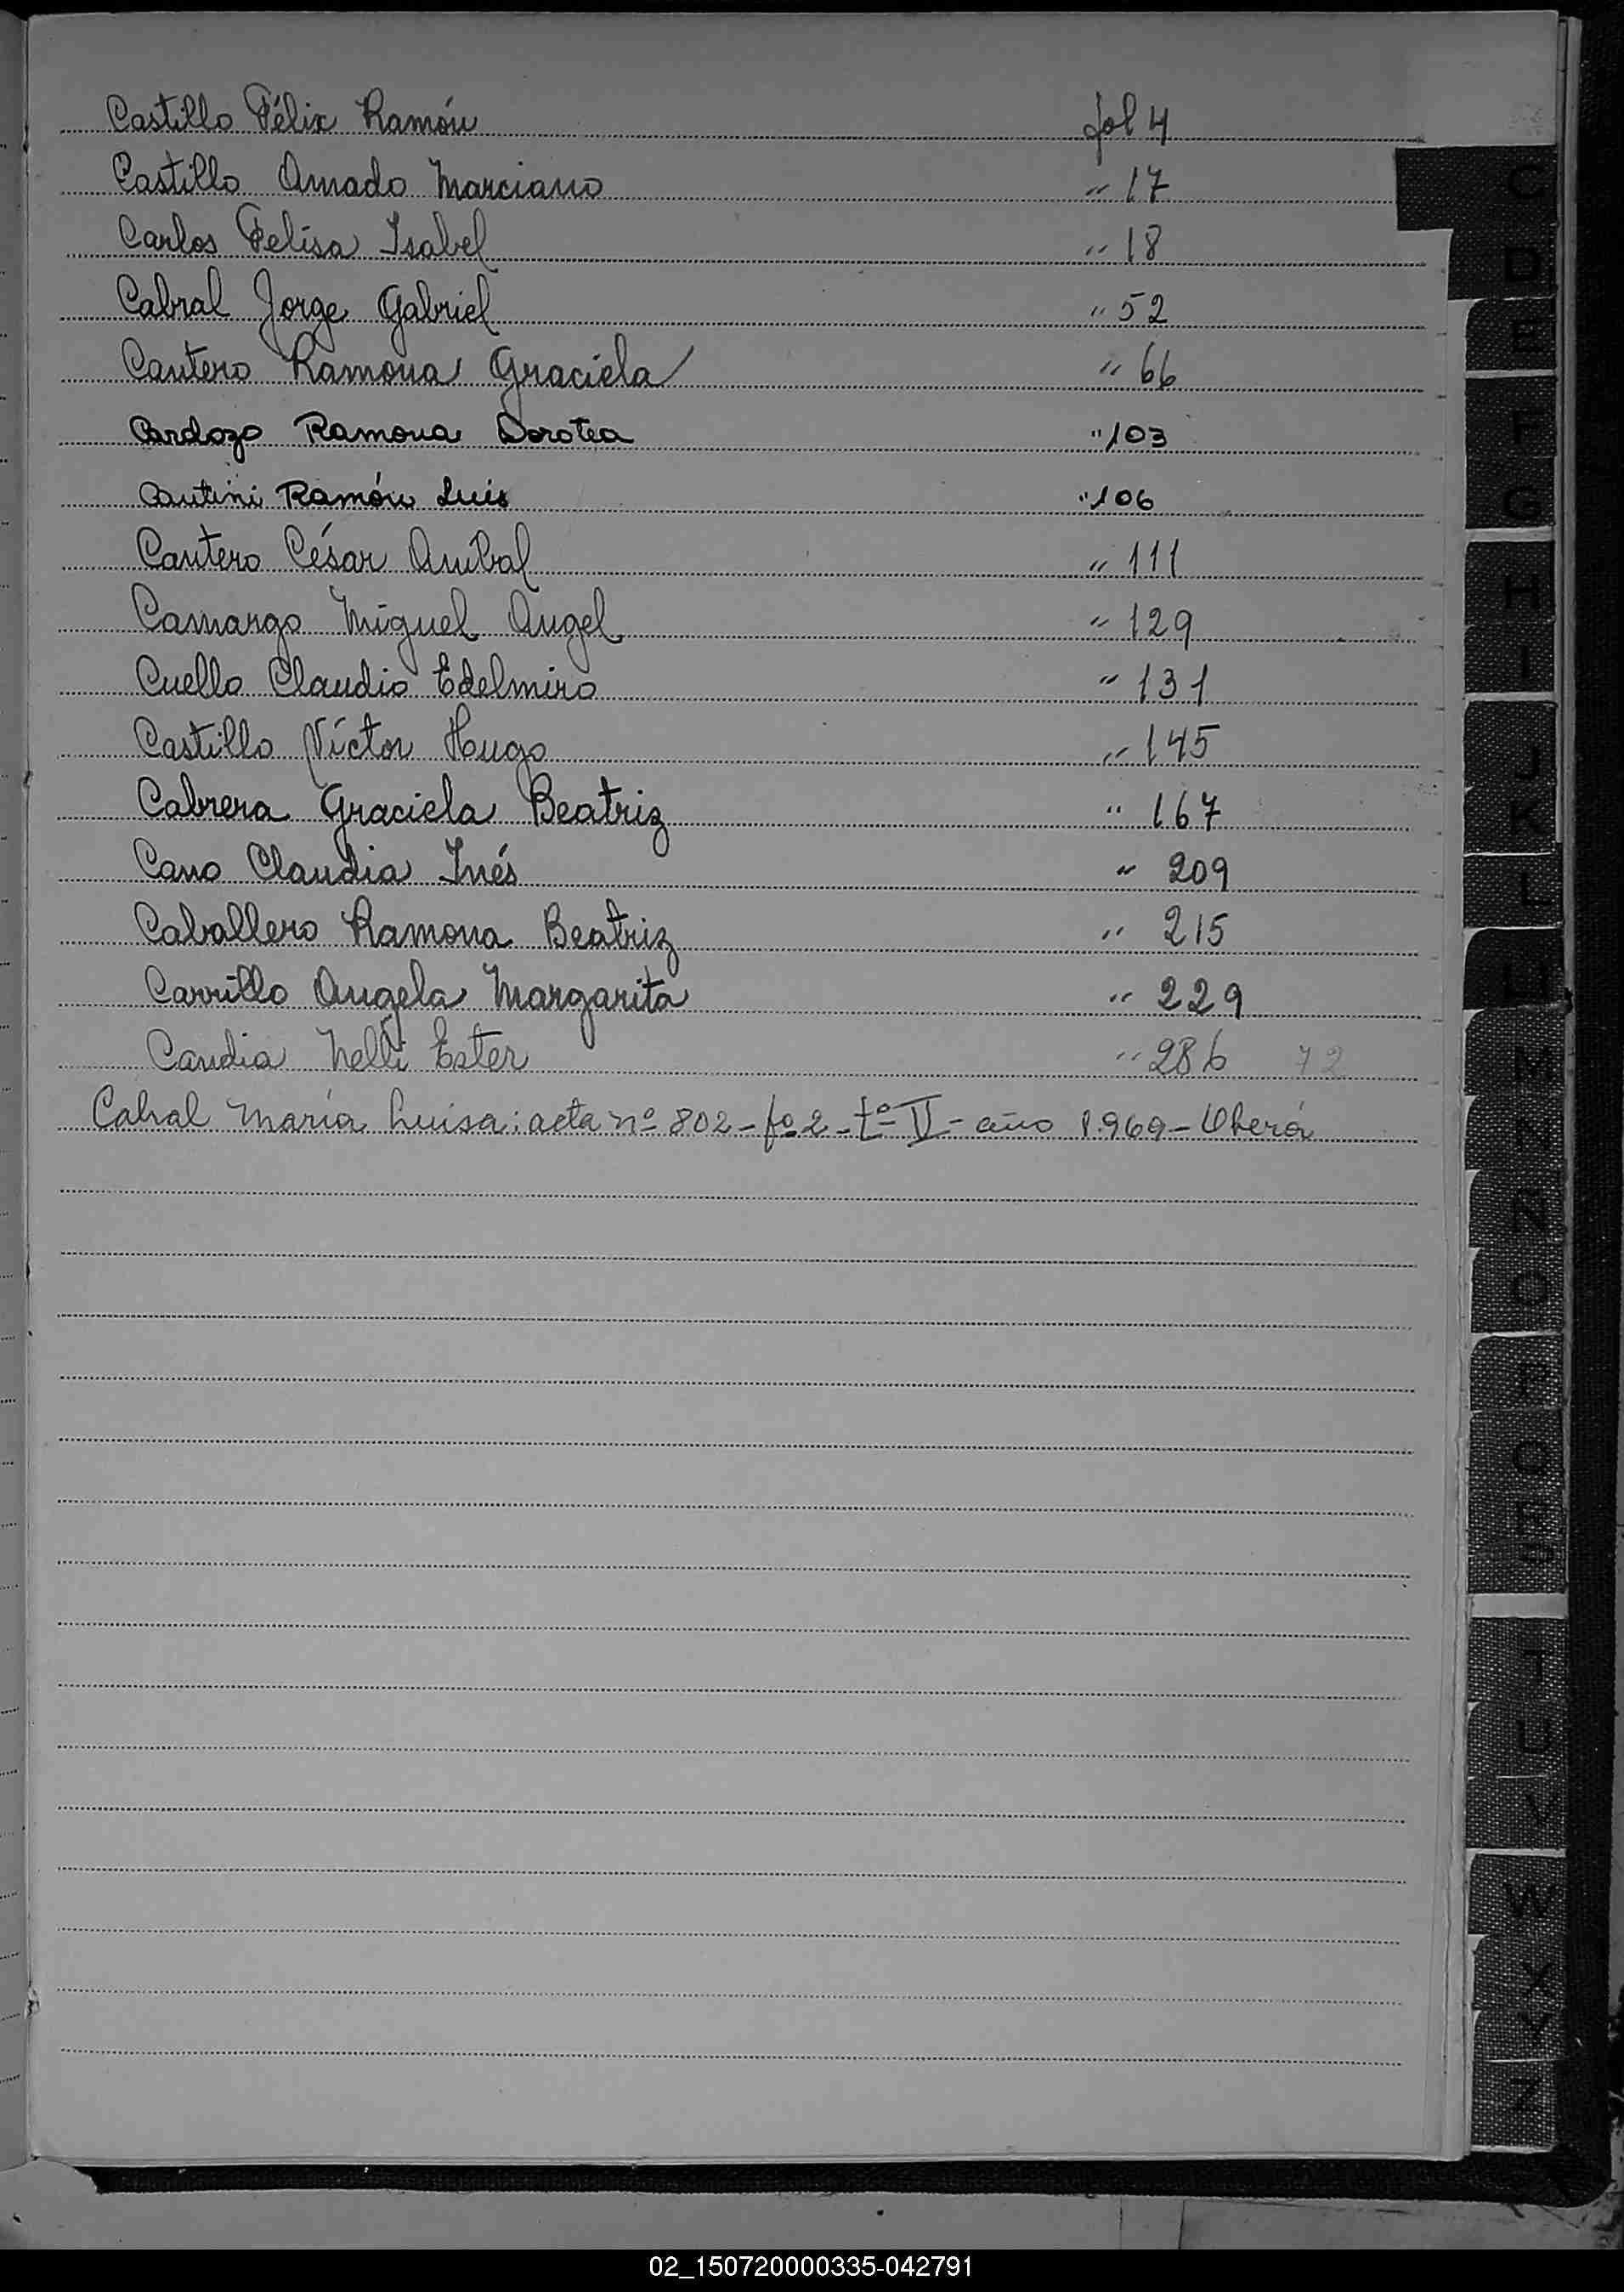 Castillo Félix Ramón fol 4
Castillo Amado Marciano " 17
Carlos Felisa Isabel " 18
Cabral Jorge Gabriel " 52
Cantero Ramona Graciela " 66
Cardozo Ramona Dorotea " 103
Cantini Ramón Luis " 106
Cantero César Aníbal " 111
Camargo Miguel Angel " 129
Cuello Claudio Edelmiro " 131
Castillo Víctor Hugo " 145
Cabrera Graciela Beatriz " 167
Cano Claudia Inés " 209
Caballero Ramona Beatriz " 215
Carrillo Angela Margarita " 229
Candia Nelli Ester " 286 72
Cabral María Luisa: acta nº 802 - fº 2 - tº II - año 1.969 - Oberá
C
D
E
F
G
H
I
J
K
L
LL
M
N
Ñ
O
P
Q
R
S
T
U
V
W
X
Y
Z
02_150720000335-042791